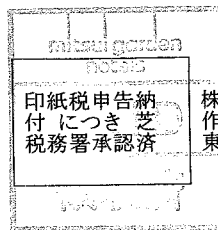 mitsui garden
hotels
印紙税申告納
付 につき 芝
税務署承認済
株
作
東